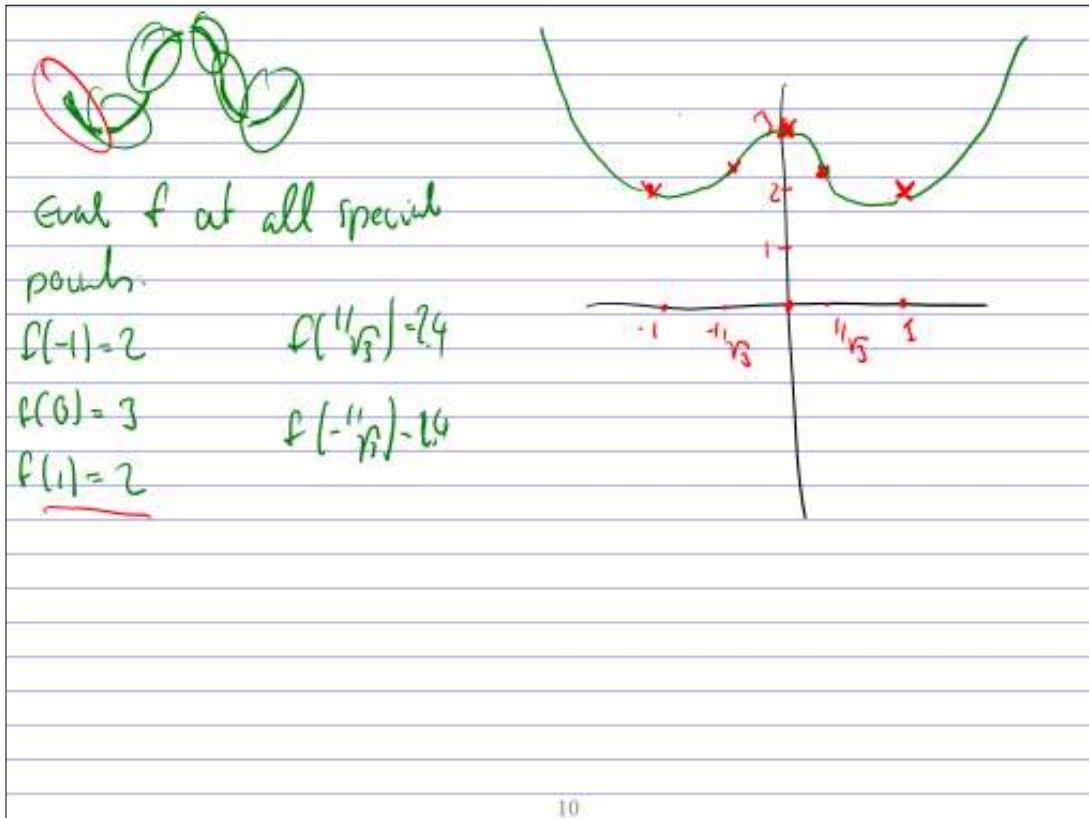 Eval f at all special
points.
f(-1)=2 f(1/√3)=2.4
f(0)=3 f(-1/√3)=2.4
f(1)=2
3
2
1
-1 -1/√3 1/√3 1
10